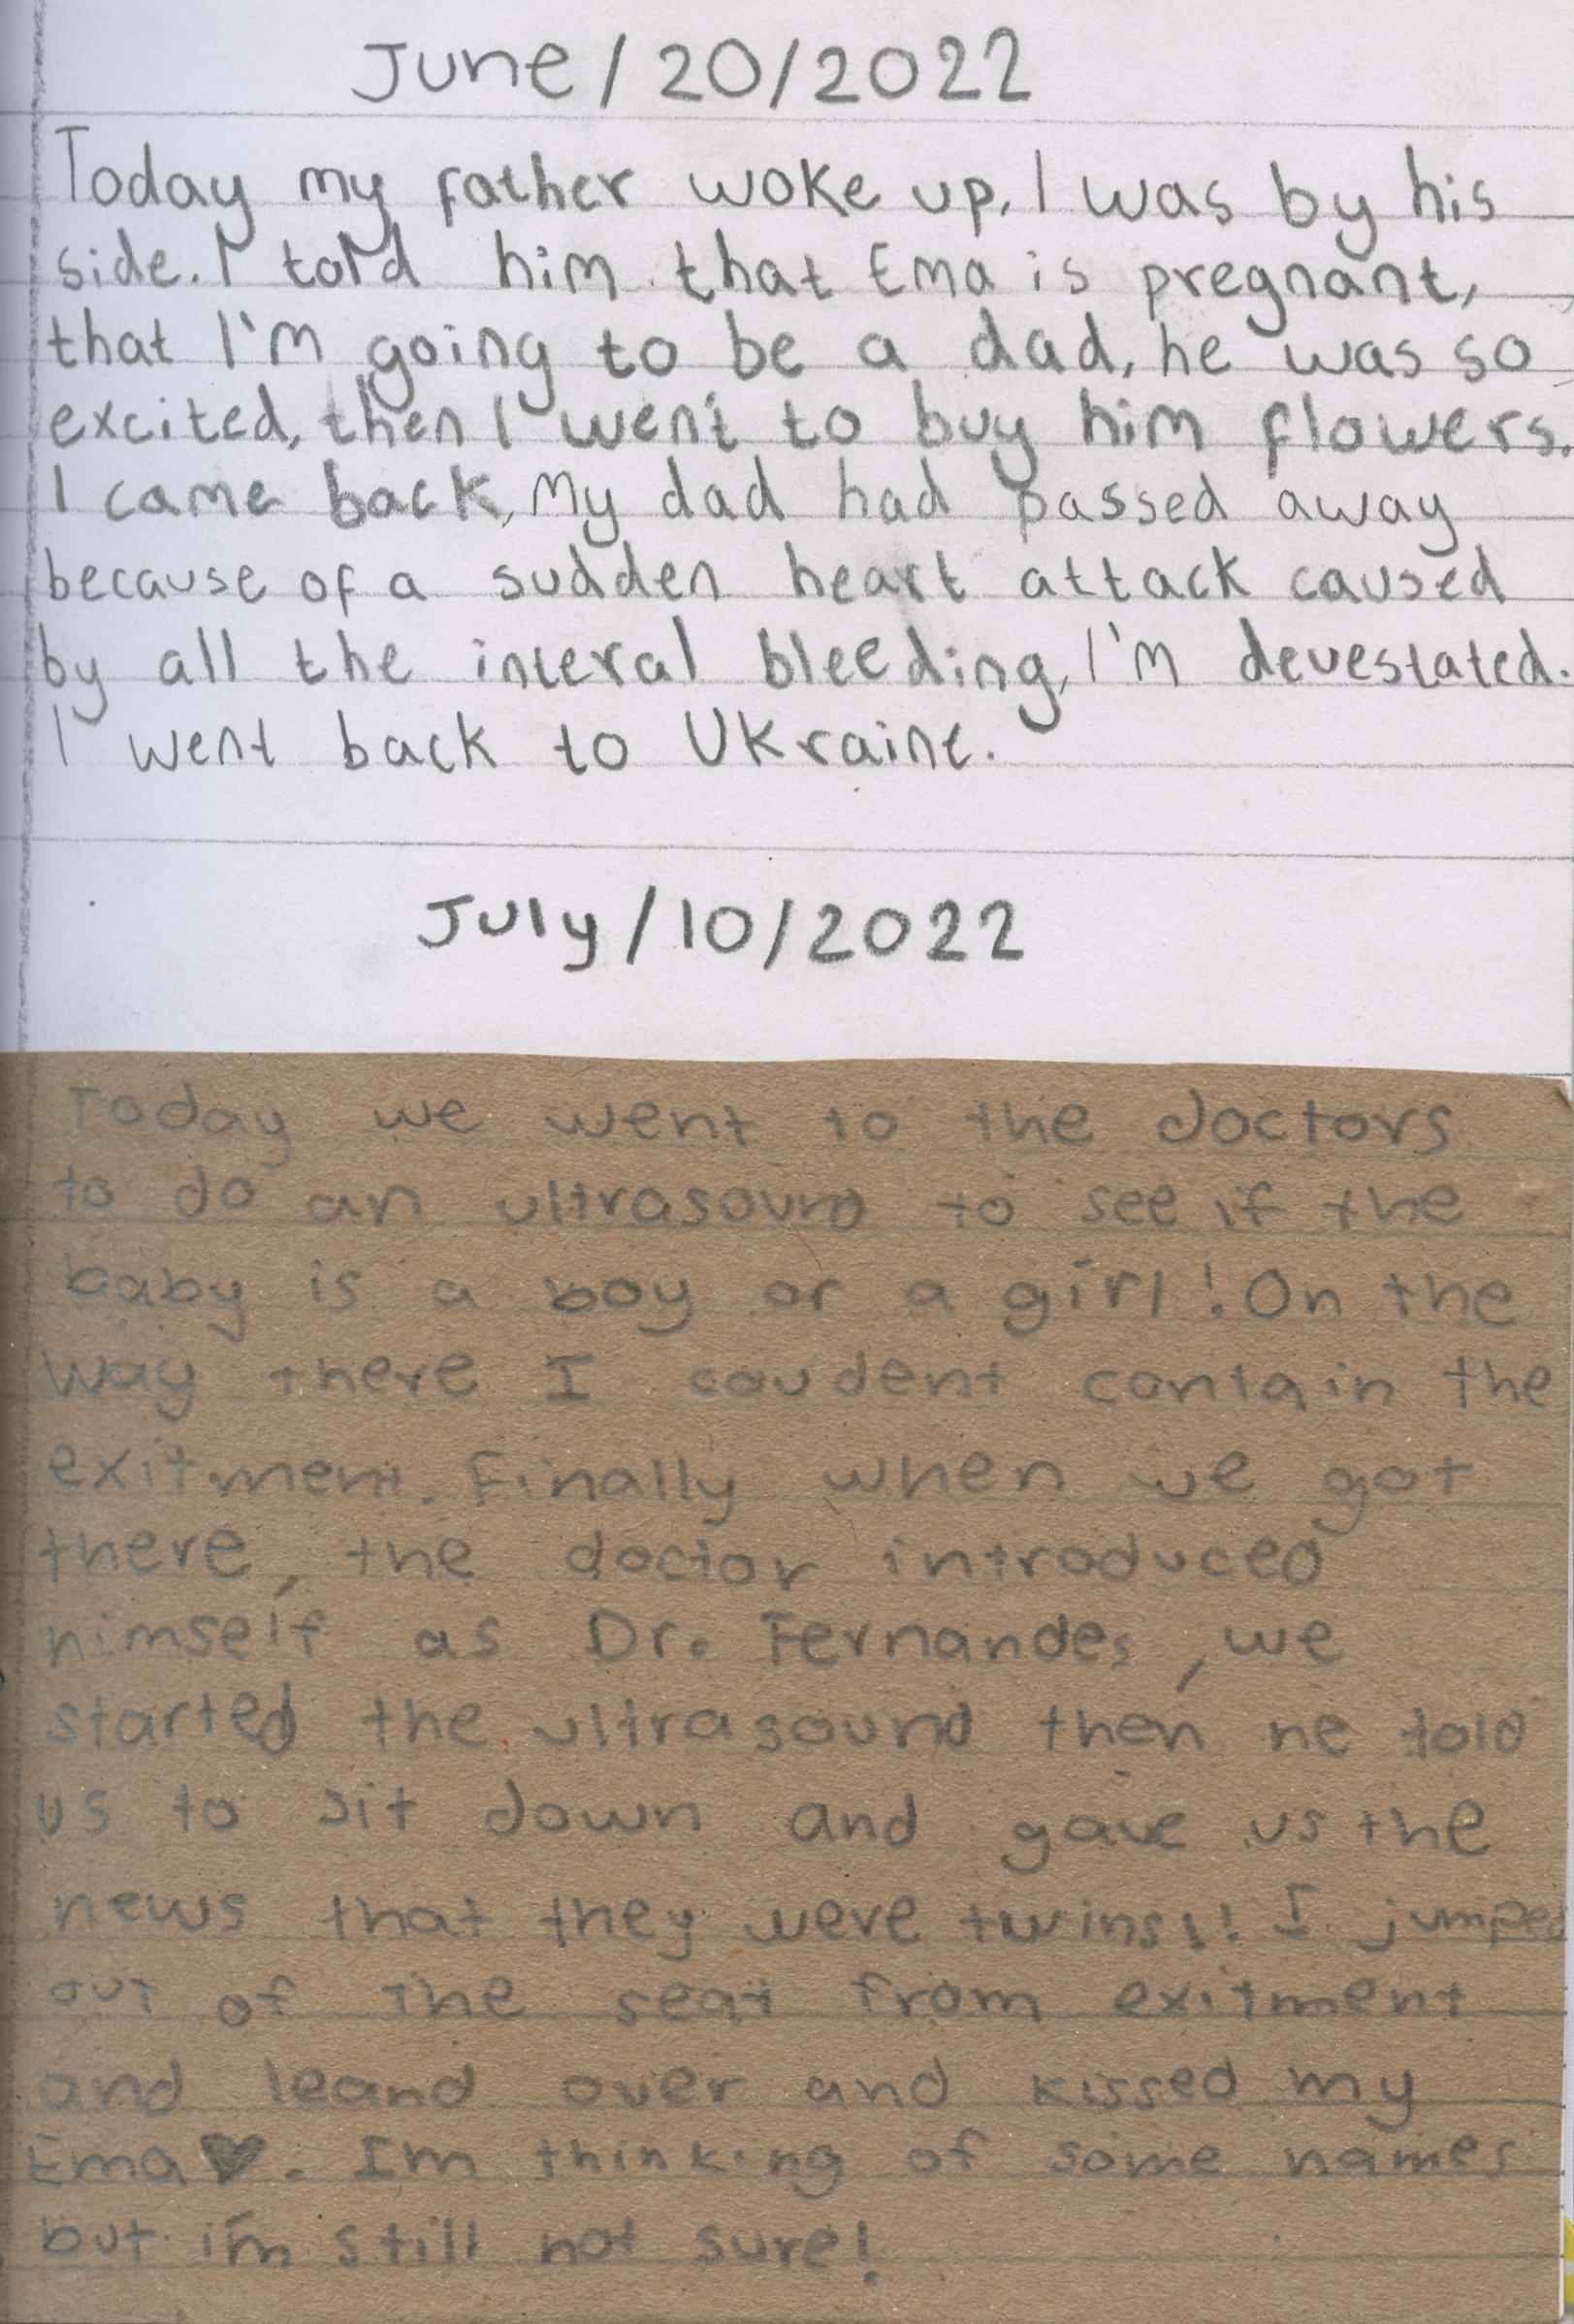 June/20/2022
Today my father woke up, I was by his
side. I told him that Ema is pregnant,
that I'm going to be a dad, he was so
excited, then I went to buy him flowers.
I came back, My dad had passed away
because of a sudden heart attack caused
by all the interal bleeding, I'm devestated.
I went back to Ukraine.
July/10/2022
Today we went to the doctors
to do an ultrasound to see if the
baby is a boy or a girl! On the
way there I coudent contain the
exitment. Finally when we got
there, the doctor introduced
himself as Dr. Fernandes, we
started the ultrasound then he told
us to sit down and gave us the
news that they were twins!! I jumped
out of the seat from exitment
and leand over and kissed my
Ema♥. Im thinking of some names
but i'm still not sure!